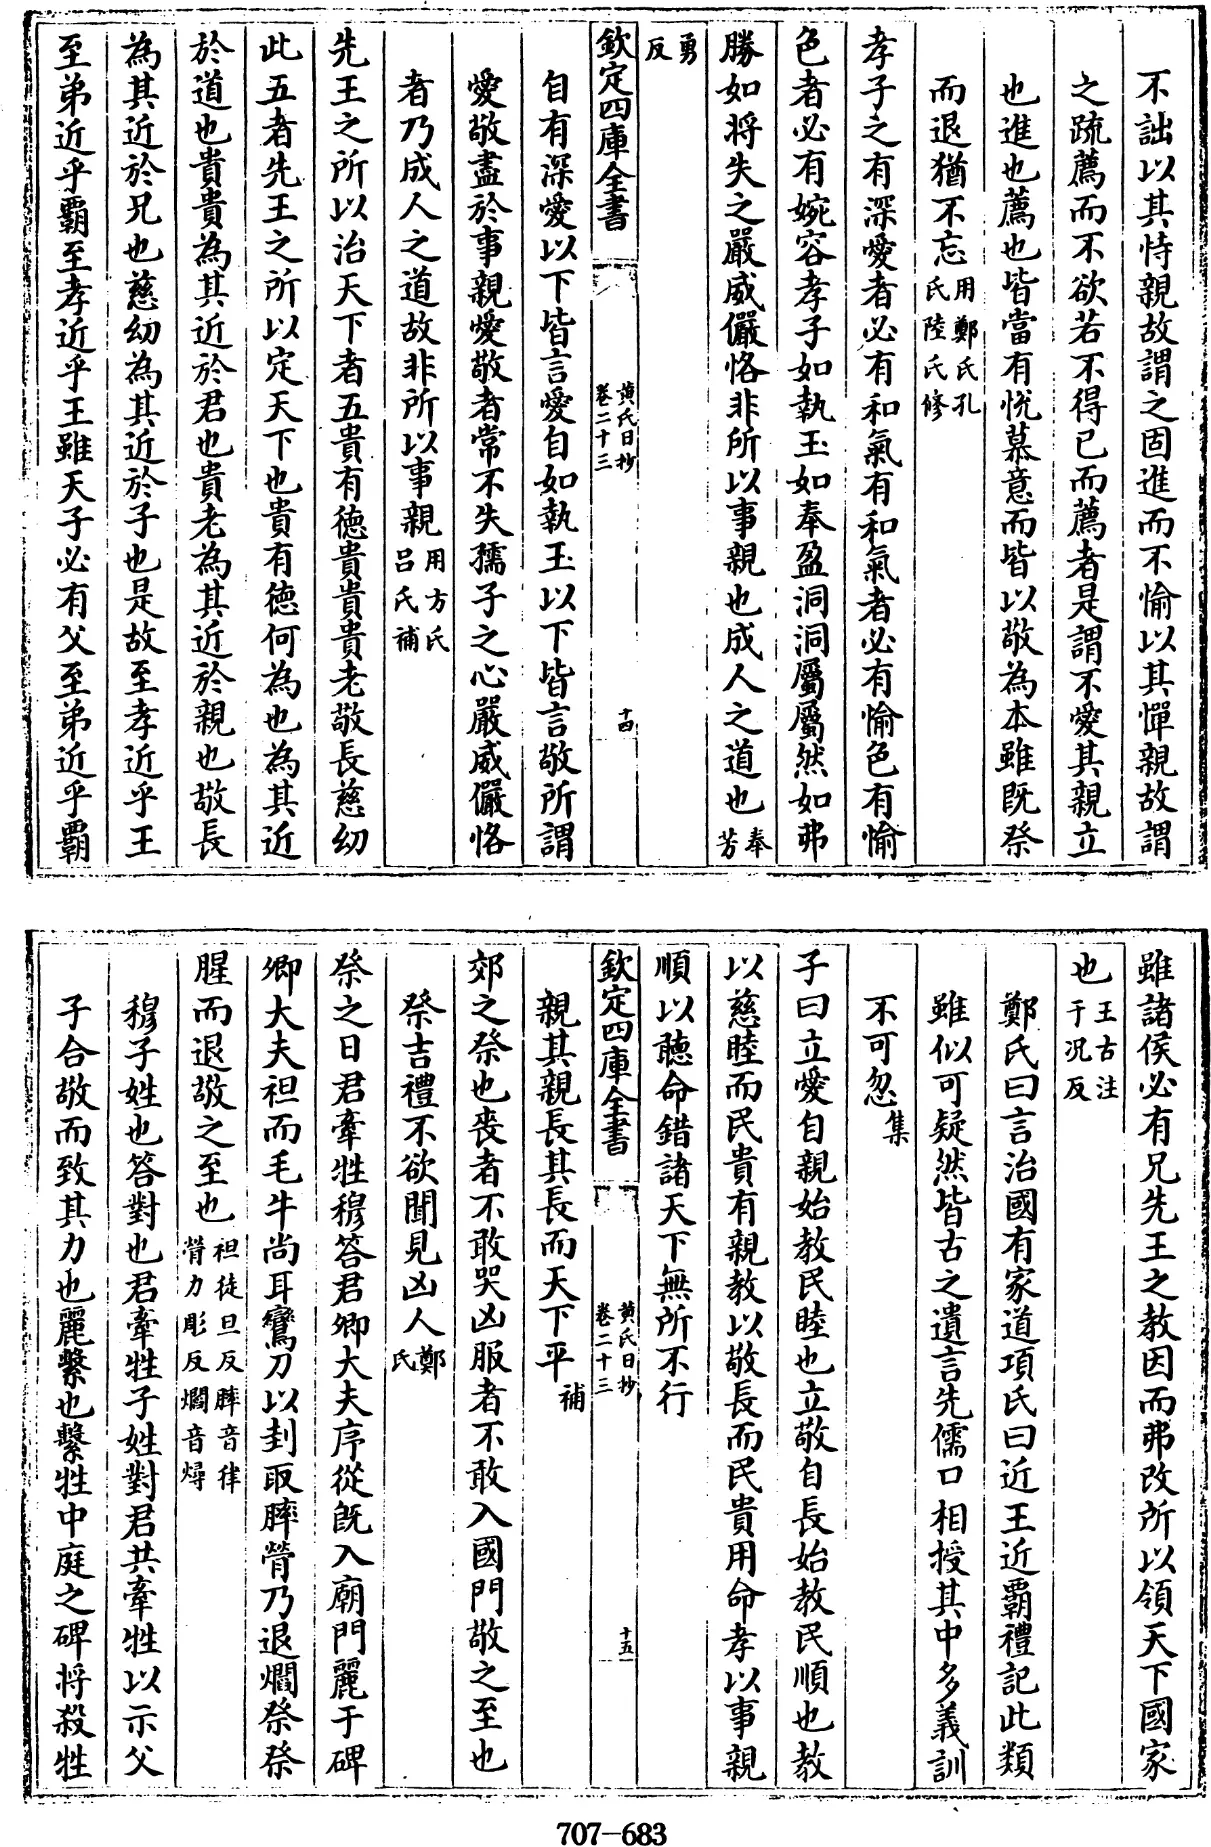 不詘以其恃親故謂之固進而不愉以其憚親故謂
之疏薦而不欲若不得已而薦者是謂不愛其親立
也進也薦也皆當有悅慕意而皆以敬為本雖既祭
而退猶不忘用鄭氏孔氏陸氏修
孝子之有深愛者必有和氣有和氣者必有愉色有愉
色者必有婉容孝子如執玉如奉盈洞洞屬屬然如弗
勝如將失之嚴威儼恪非所以事親也成人之道也奉芳
勇反
欽定四庫全書
黄氏日抄
卷二十三
十四
自有深愛以下皆言愛自如執玉以下皆言敬所謂
愛敬盡於事親愛敬者常不失孺子之心嚴威儼恪
者乃成人之道故非所以事親用方氏呂氏補
先王之所以治天下者五貴有德貴貴貴老敬長慈幼
此五者先王之所以定天下也貴有德何為也為其近
於道也貴貴為其近於君也貴老為其近於親也敬長
為其近於兄也慈幼為其近於子也是故至孝近乎王
至弟近乎霸至孝近乎王雖天子必有父至弟近乎霸
雖諸侯必有兄先王之教因而弗改所以領天下國家
也王古注于況反
鄭氏曰言治國有家道項氏曰近王近霸禮記此類
雖似可疑然皆古之遺言先儒口相授其中多義訓
不可忽集
子曰立愛自親始教民睦也立敬自長始教民順也教
以慈睦而民貴有親教以敬長而民貴用命孝以事親
順以聽命錯諸天下無所不行
欽定四庫全書
黄氏日抄
卷二十三
十五
親其親長其長而天下平補
郊之祭也喪者不敢哭凶服者不敢入國門敬之至也
祭吉禮不欲聞見凶人鄭氏
祭之日君牽牲穆答君卿大夫序從既入廟門麗于碑
卿大夫袒而毛牛尚耳鸞刀以刲取膟膋乃退爓祭祭
腥而退敬之至也袒徒旦反膟音律膋力彫反爓音燖
穆子姓也答對也君牽牲子姓對君共牽牲以示父
子合敬而致其力也麗繫也繫牲中庭之碑將殺牲
707—683